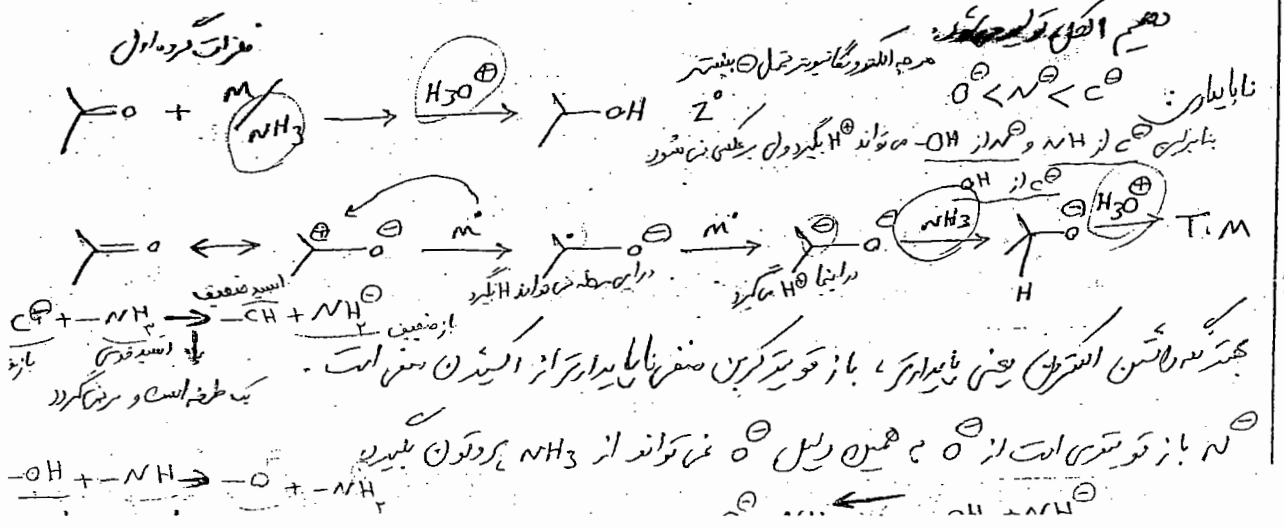 فلزات گروه اول
هرچه الکترونگاتیوتر تحمل ⊖ بیشتر
ناپایداری: O⊖ < N⊖ < C⊖
=O + M / NH3 → H3O⊕ → -OH 2°
بنابراین C⊖ از NH و N⊖ از OH- می‌تواند H⊕ بگیرد ولی برعکس نمی‌شود
C⊖ از OH
=O ↔ ⊕ -O⊖ → M° → . -O⊖ → M° → ⊖ -O⊖ → NH3 → -O⊖ H → H3O⊕ → T.M
در این مرحله نمی‌تواند H بگیرد
در اینجا H⊕ می‌گیرد
اسید ضعیف
C⊖ + -NH3 → -CH + NH2⊖
باز ضعیف
اسید قوی
یک طرفه است و بر نمی‌گردد
بهتر نگه داشتن الکترون یعنی پایدارتر، باز قویتر کربن منفی ناپایدارتر از اکسیژن منفی است.
N⊖ باز قویتری است از O⊖ به همین دلیل O⊖ نمی‌تواند از NH3 پروتون بگیرد
-OH + -NH → -O⊖ + -NH2